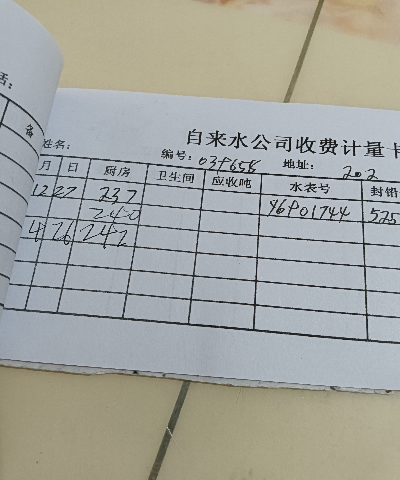 话:
备
自来水公司收费计量卡
姓名: 编号: 039658 地址: 202
月 日 厨房 卫生间 应收吨 水表号 封铅
12 27 237 525
240
4 26 242